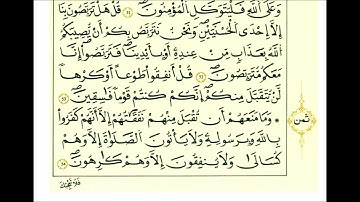 وَعَلَى ٱللَّهِ فَلْيَتَوَكَّلِ ٱلْمُؤْمِنُونَ ٥١ قُلْ هَلْ تَرَبَّصُونَ بِنَا
إِلَّا إِحْدَى ٱلْحُسْنَيَيْنِ وَنَحْنُ نَتَرَبَّصُ بِكُمْ أَنْ يُّصِيبَكُمُ
ٱللَّهُ بِعَذَابٍ مِّنْ عِندِهِ أَوْ بِأَيْدِينَا فَتَرَبَّصُوا إِنَّا
مَعَكُم مُّتَرَبِّصُونَ ٥٢ قُلْ أَنفِقُوا طَوْعًا أَوْ كَرْهًا
لَّنْ يُّتَقَبَّلَ مِنكُمْ إِنَّكُمْ كُنتُمْ قَوْمًا فَاسِقِينَ ٥٣
وَمَا مَنَعَهُمْ أَن تُقْبَلَ مِنْهُمْ نَفَقَاتُهُمْ إِلَّا أَنَّهُمْ كَفَرُوا
ثمن
بِٱللَّهِ وَبِرَسُولِهِ وَلَا يَأْتُونَ ٱلصَّلَوٰةَ إِلَّا وَهُمْ
كُسَالَىٰ وَلَا يُنفِقُونَ إِلَّا وَهُمْ كَارِهُونَ ٥٤
فَلَا تُعْجِبْكَ